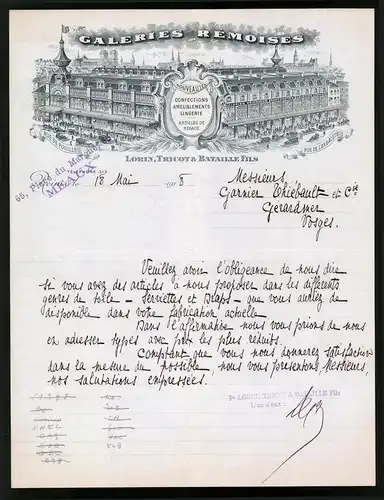 GALERIES RÉMOISES
NOUVEAUTÉS
CONFECTIONS
AMEUBLEMENTS
LINGERIE
ARTICLES DE
MÉNAGE
LORIN, TRICOT & BATAILLE FILS
TÉLÉPHONE
65, Place du Marché
MEAUX
18 Mai 8
Messieurs,
Garnier Thiébault et Cie
Gerardmer
Vosges.
Veuillez avoir l'obligeance de nous dire
si vous avez des articles à nous proposer dans les différents
genres de toile - Serviettes et Draps - que vous auriez de
disponible dans votre fabrication actuelle.
Dans l'affirmative nous vous prions de nous
en adresser types avec prix les plus réduits.
Comptant que vous nous donnerez satisfaction
dans la mesure du possible, nous vous présentons, Messieurs,
nos salutations empressées.
Pr LORIN, TRICOT & BATAILLE Fils